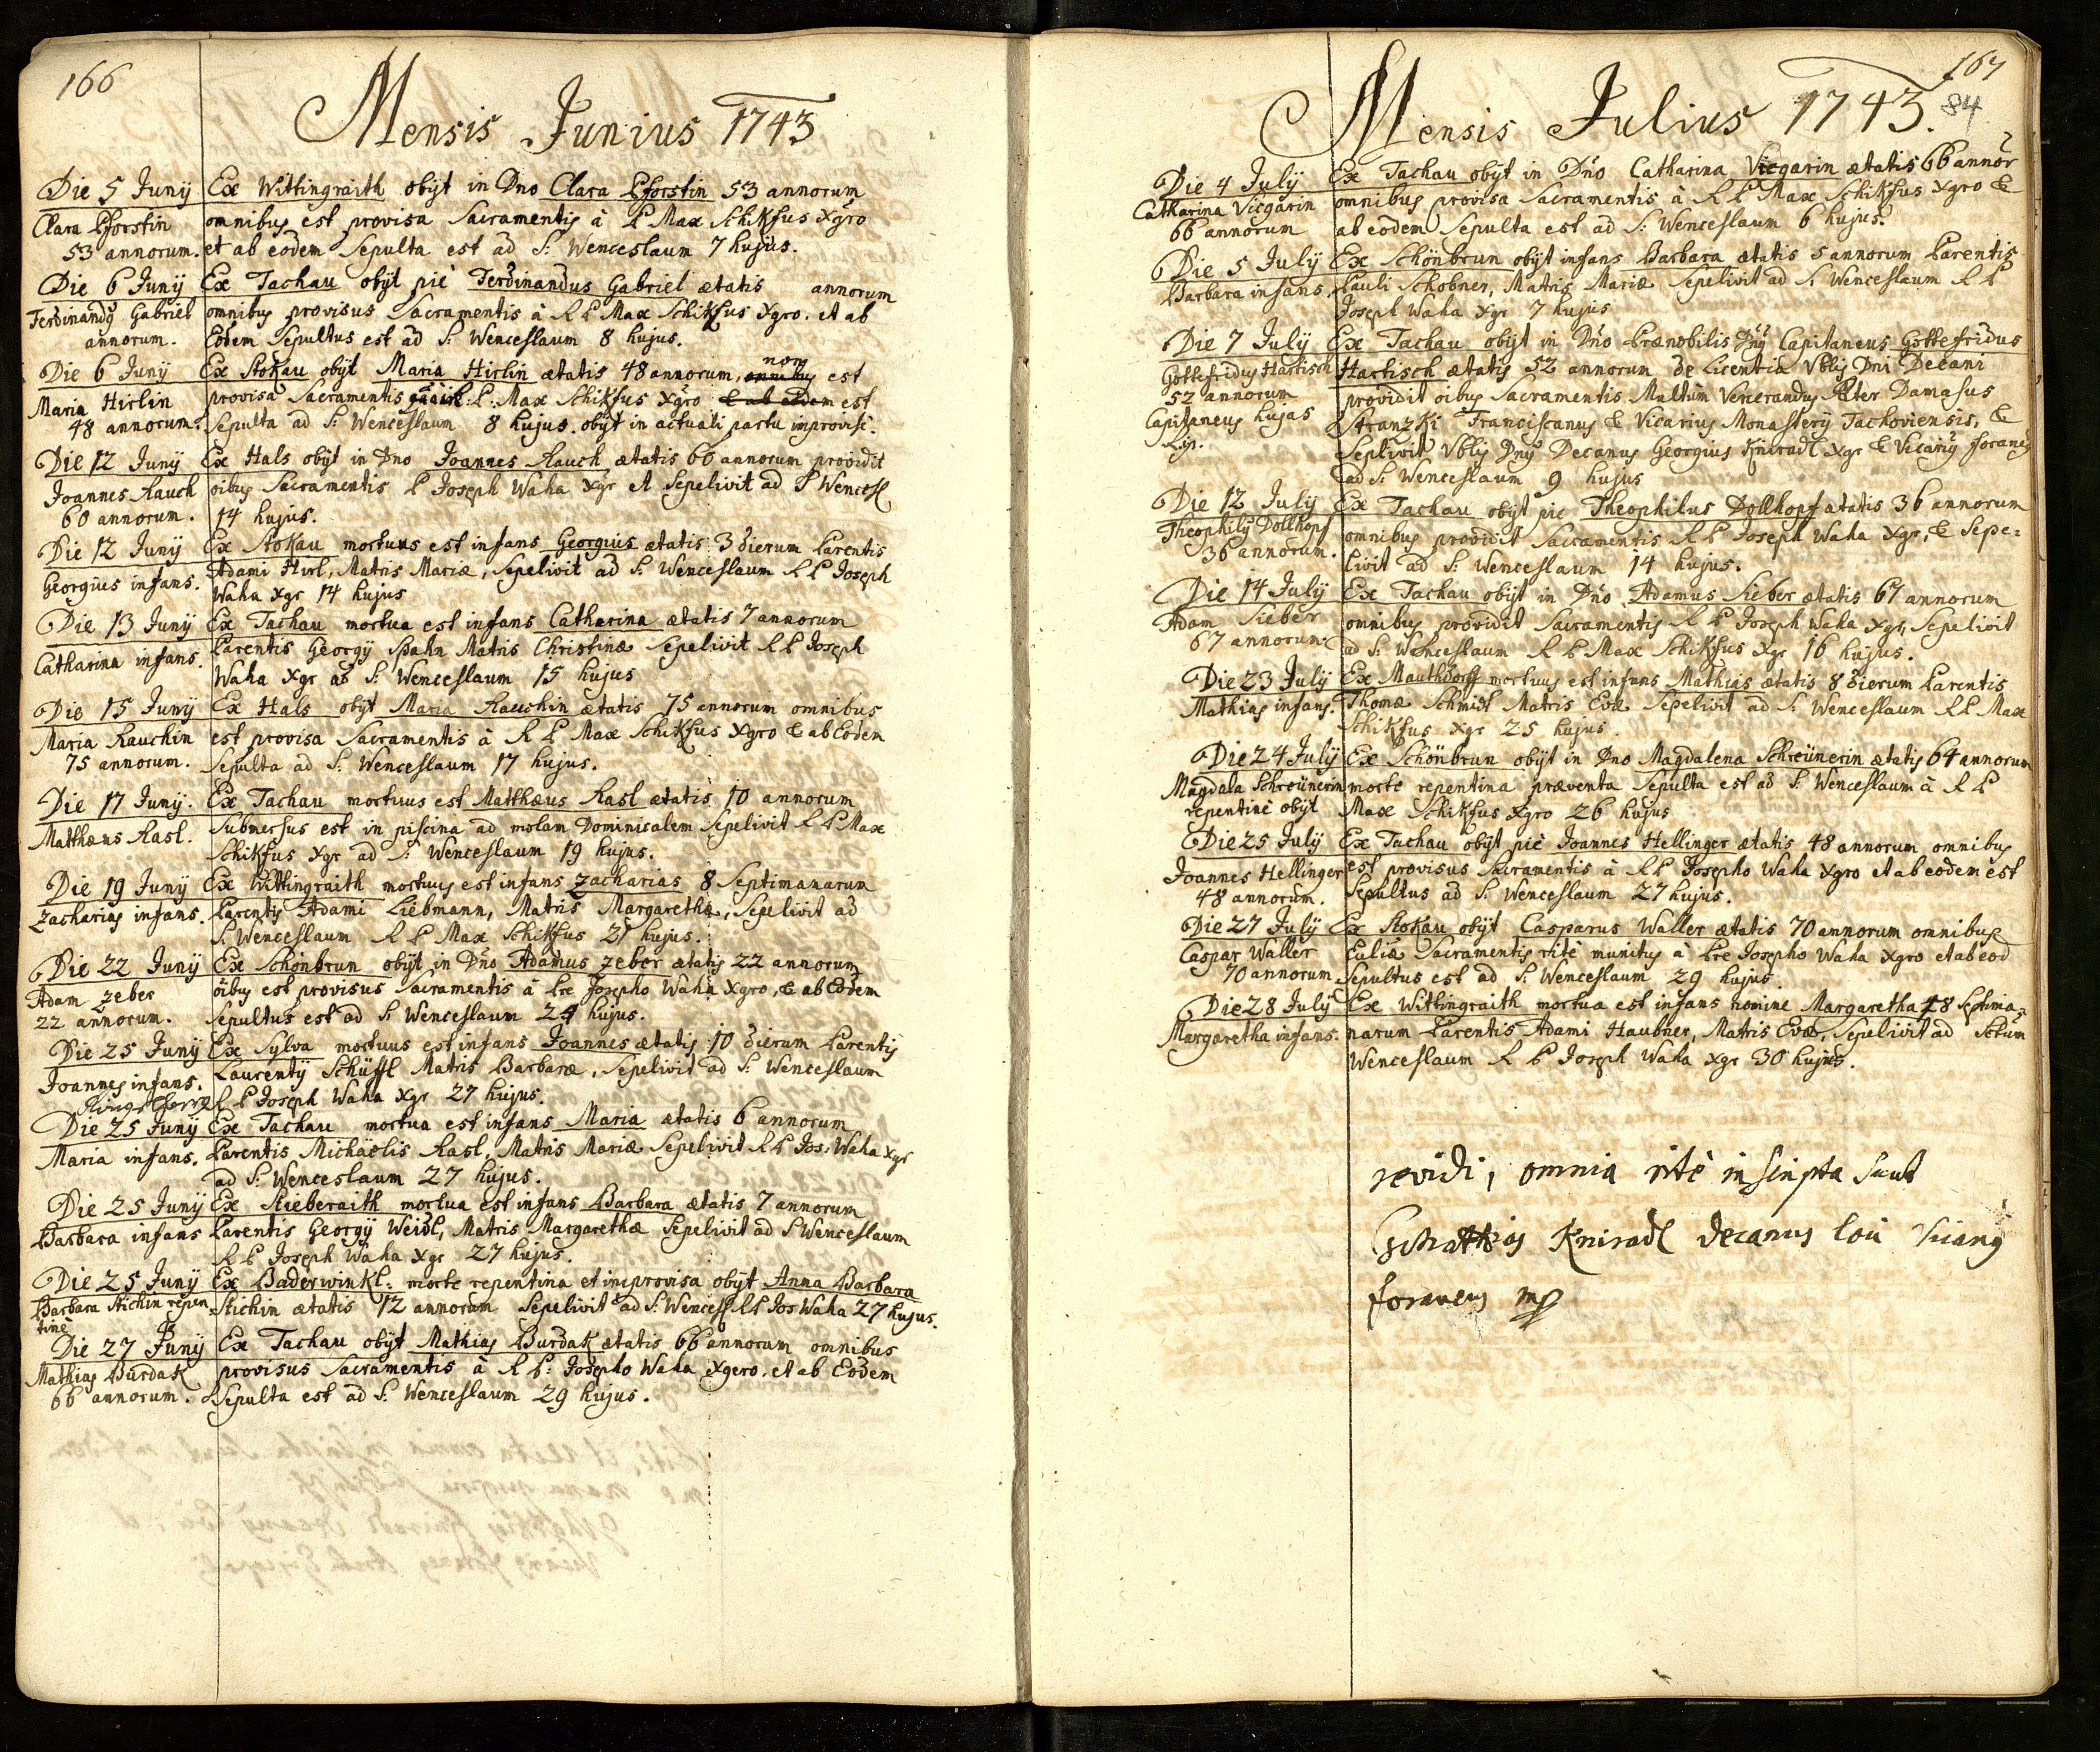 166
Mensis Junius 1743
Die 5 Junij
Clara Pforstin
53 annorum.
Ex Wittingraith obijt in Dno Clara Pforstin 53 annorum
omnibus est provisa Sacramentis à P Max Schikfus Xgro
et ab eodem Sepulta est ad S: Wenceslaum 7 hujus.
Die 6 Junij
Ferdinandus Gabriel
annorum.
Ex Tachau obijt piè Ferdinandus Gabriel ætatis annorum
omnibus provisus Sacramentis à R P Max Schikfus Xgro. et ab
Eodem Sepultus est ad S: Wenceslaum 8 hujus.
Die 6 Junij
Maria Hirlin
48 annorum.
non
Ex Stokau obijt Maria Hirlin ætatis 48 annorum, omnibus est
provisa Sacramentis P: Max Schikfus Xgro & ab eodem est
Sepulta ad S: Wenceslaum 8 hujus. obijt in actuali partu improvisè.
Die 12 Junij
Joannes Rauch
60 annorum.
Ex Hals obijt in Dno Joannes Rauch ætatis 60 annorum providit
oibus Sacramentis P Joseph Waha Xgr et Sepelivit ad S Wencesl
14 hujus.
Die 12 Junij
Georgius infans.
Ex Stokau mortuus est infans Georgius ætatis 3 dierum Parentis
Adami Hirl, Matris Mariæ, Sepelivit ad S: Wenceslaum R P Joseph
Waha Xgr 14 hujus
Die 13 Junij
Catharina infans.
Ex Tachau mortua est infans Catharina ætatis 7 annorum
Parentis Georgij Spahn Matris Christinæ Sepelivit R P Joseph
Waha Xgr ad S: Wenceslaum 15 hujus
Die 15 Junij
Maria Rauchin
75 annorum.
Ex Hals obijt Maria Rauchin ætatis 75 annorum omnibus
est provisa Sacramentis à R P Max Schikfus Xgro & ab Eodem
Sepulta ad S: Wenceslaum 17 hujus.
Die 17 Junij.
Matthæus Rasl.
Ex Tachau mortuus est Matthæus Rasl ætatis 10 annorum
Submersus est in piscina ad molam Dominicalem Sepelivit R P Max
Schikfus Xgr ad S: Wenceslaum 19 hujus.
Die 19 Junij
Zacharias infans.
Ex Wittingraith mortuus est infans Zacharias 8 Septimanarum
Parentis Adami Liebmann, Matris Margarethæ, Sepelivit ad
S: Wenceslaum R P Max Schikfus 21 hujus.
Die 22 Junij
Adam Zeber
22 annorum.
Ex Schönbrun obijt in Dno Adamus Zeber ætatis 22 annorum
oibus est provisus Sacramentis à Pre Josepho Waha Xgro, & ab Eodem
Sepultus est ad S: Wenceslaum 24 hujus.
Die 25 Junij
Joannes infans.
Ex Sylva mortuus est infans Joannes ætatis 10 dierum Parentis
Laurentij Schüssl Matris Barbaræ, Sepelivit ad S: Wenceslaum
R P Joseph Waha Xgr 27 hujus.
Die 25 Junij
Maria infans.
Ex Tachau mortua est infans Maria ætatis 6 annorum
Parentis Michaëlis Rasl, Matris Mariæ Sepelivit R P Jos: Waha Xgr
ad S: Wenceslaum 27 hujus.
Die 25 Junij
Barbara infans
Ex Stieberaith mortua est infans Barbara ætatis 7 annorum
Parentis Georgij Weidl, Matris Margarethæ Sepelivit ad S Wenceslaum
R P Joseph Waha Xgr 27 hujus.
Die 25 Junij
Barbara Stichin repen
tinè
Ex Baderwinkl: morte repentina et improvisa obijt Anna Barbara
Stichin ætatis 12 annorum Sepelivit ad S: Wencesl R P Jos Waha 27 hujus.
Die 27 Junij
Mathias Burdak
66 annorum.
Ex Tachau obijt Mathias Burdak ætatis 66 annorum omnibus
provisus Sacramentis à R P: Josepho Waha Xgero. et ab Eodem
Sepulta est ad S: Wenceslaum 29 hujus.
167
84
Mensis Julius 1743.
Die 4 July
Catharina Vicgarin
66 annorum
Ex Tachau obijt in Dno Catharina Vicgarin ætatis 66 annor
omnibus provisa Sacramentis à R P Max Schikfus Xgro &
ab eodem Sepulta est ad S: Wenceslaum 6 hujus.
Die 5 July
Barbara infans.
Ex Schönbrun obijt infans Barbara ætatis 5 annorum Parentis
Pauli Schobner, Matris Mariæ Sepelivit ad S: Wenceslaum R P
Joseph Waha Xgr 7 hujus
Die 7 July
Gottefridus Hartisch
52 annorum
Capitaneus hujas
Ex Tachau obijt in Dno Prænobilis Dnus Capitaneus Gottefridus
Hartisch ætatis 52 annorum de Licentia Vblis Dni Decani
providit oibus Sacramentis Multum Venerandus Pater Damasus
Stranzki Franciscanus & Vicarius Monasterij Tachoviensis, &
Seplivit Vblis Dnus Decanus Georgius Kniradl Xgr & Vicarius foraneus
ad S: Wenceslaum 9 hujus
Die 12 July
Theophilus Dollhopf
36 annorum.
Ex Tachau obijt pie Theophilus Dollhopf ætatis 36 annorum
omnibus providit Sacramentis R P Joseph Waha Xgr, & Sepe=
livit ad S: Wenceslaum 14 hujus.
Die 14 July
Adam Sieber
67 annorum
Ex Tachau obijt in Dno Adamus Sieber ætatis 67 annorum
omnibus providit Sacramentis R P Joseph Waha Xgr, Sepelivit
ad S: Wenceslaum R P Max Schikfus Xgr 16 hujus.
Die 23 July
Mathias infans.
Ex Mauthdorff mortuus est infans Mathias ætatis 8 dierum Parentis
Thomæ Schmidt Matris Evæ Sepelivit ad S: Wenceslaum R P Max
Schikfus Xgr 25 hujus.
Die 24 July
Magdala Schreünerin
repentinè obijt
Ex Schönbrun obijt in Dno Magdalena Schreünerin ætatis 64 annorum
morte repentina præventa Sepulta est ad S: Wenceslaum à R P
Max Schikfus Xgro 26 hujus
Die 25 July
Joannes Hellinger
48 annorum.
Ex Tachau obijt piè Joannes Hellinger ætatis 48 annorum omnibus
est provisus Sacramentis à R P Josepho Waha Xgro et ab eodem est
Sepultus ad S: Wenceslaum 27 hujus.
Die 27 July
Caspar Waller
70 annorum
Ex Stokau obijt Casparus Waller ætatis 70 annorum omnibus
Ecliæ Sacramentis ritè munitus à Pre Josepho Waha Xgro et ab eod
Sepultus est ad S: Wenceslaum 29 hujus
Die 28 July
Margaretha infans.
Ex Wittingraith mortua est infans nomine Margaretha 18 Septima=
narum Parentis Adami Haubner, Matris Evæ, Sepelivit ad Sctum
Wenceslaum R P Joseph Waha Xgr 30 hujus.
revidi, omnia ritè inscripta sunt
Kniradl Decanus loci Vicarius
foraneus mp